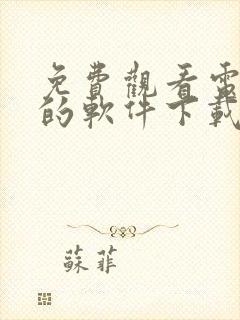 免費觀看電
的軟件下載
蘇菲